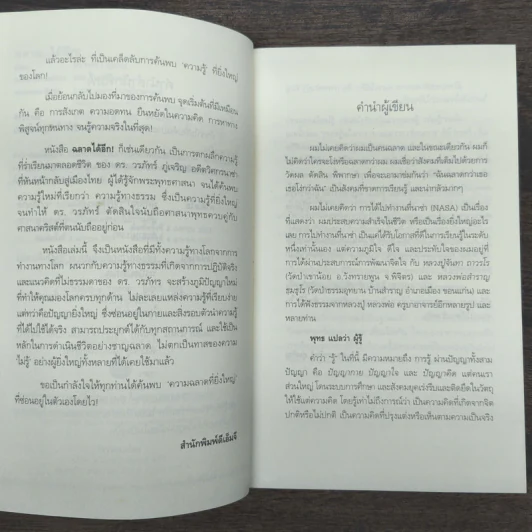 แล้วอะไรล่ะ ที่เป็นเคล็ดลับการค้นพบ 'ความรู้' ที่ยิ่งใหญ่
ของโลก!
เมื่อย้อนกลับไปมองที่มาของการค้นพบ จุดเริ่มต้นที่มีเหมือน
กัน คือ การสังเกต ความอดทน ยืนหยัดในความคิด การหาทาง
พิสูจน์ทุกหนทาง จนรู้ความจริงในที่สุด!
หนังสือ ฉลาดได้อีก! ก็เช่นเดียวกัน เป็นการตกผลึกความรู้
ที่ร่ำเรียนมาตลอดชีวิต ของ ดร. วรภัทร์ ภู่เจริญ อดีตวิศวกรนาซ่า
ที่หันหน้ากลับสู่เมืองไทย ผู้ได้รู้จักพระพุทธศาสนา จนได้ค้นพบ
ความรู้ใหม่ที่เรียกว่า ความรู้ทางธรรม ซึ่งเป็นความรู้ที่ยิ่งใหญ่
จนทำให้ ดร. วรภัทร์ ตัดสินใจนับถือศาสนาพุทธควบคู่กับ
ศาสนาคริสต์ที่ตนนับถืออยู่ก่อน
หนังสือเล่มนี้ จึงเป็นหนังสือที่มีทั้งความรู้ทางโลกจากการ
ทำงานทางโลก ผนวกกับความรู้ทางธรรมที่เกิดจากการปฏิบัติจริง
และแนวคิดที่ไม่ธรรมดาของ ดร. วรภัทร์ จะสร้างภูมิปัญญาใหม่
ที่ทำให้คุณมองโลกครบทุกด้าน ไม่ละเลยแหล่งความรู้ที่เรียบง่าย
แต่ทว่าคือปัญญายิ่งใหญ่ ซึ่งซ่อนอยู่ในกายและสิ่งรอบตัวนำความรู้
ที่ได้ไปใช้ได้จริง สามารถประยุกต์ได้กับทุกสถานการณ์ และใช้เป็น
หลักในการดำเนินชีวิตอย่างชาญฉลาด ไม่ตกเป็นทาสของความ
'ไม่รู้' อย่างผู้ยิ่งใหญ่ทั้งหลายที่ได้เคยใช้มาแล้ว
ขอเป็นกำลังใจให้ทุกท่านได้ค้นพบ 'ความฉลาดที่ยิ่งใหญ่'
ที่ซ่อนอยู่ในตัวเองโดยไว!
สำนักพิมพ์ดีเอ็มจี
คำนำผู้เขียน
ผมไม่เคยคิดว่าผมเป็นคนฉลาด และในขณะเดียวกัน ผมก็
ไม่คิดว่าใครจะโง่หรือฉลาดกว่าผม ผมเชื่อว่าสังคมที่เต็มไปด้วยการ
วัดผล ตัดสิน พิพากษา เพื่อจะเอามาข่มกันว่า 'ฉันฉลาดกว่าเธอ
เธอโง่กว่าฉัน' เป็นสังคมที่ขาดการเรียนรู้ และน่ากลัวมากๆ
ผมไม่เคยคิดว่า การได้ไปทำงานที่นาซ่า (NASA) เป็นเรื่อง
ที่แสดงว่า ผมประสบความสำเร็จในชีวิต หรือเป็นเรื่องยิ่งใหญ่อะไร
เลย การไปทำงานที่นาซ่า เป็นแค่ได้รับโอกาสที่ดีในการเรียนรู้ในระดับ
หนึ่งเท่านั้นเอง แต่ความภูมิใจ ดีใจ และประทับใจของผมอยู่ที่
การได้ผ่านประสบการณ์การพัฒนาจิตใจ กับ หลวงปู่จันทา ถาวโร
(วัดป่าเขาน้อย อ.วังทรายพูน จ.พิจิตร) และ หลวงพ่อสำราญ
ธมฺธุโร (วัดป่าธรรมอุทยาน บ้านสำราญ อำเภอเมือง ขอนแก่น) และ
การได้ฟังธรรมจากหลวงปู่ หลวงพ่อ ครูบาอาจารย์อีกหลายรูป และ
หลายท่าน
พุทธ แปลว่า ผู้รู้
คำว่า 'รู้' ในที่นี้ มีความหมายถึง การรู้ ผ่านปัญญาทั้งสาม
ปัญญา คือ ปัญญากาย ปัญญาใจ และ ปัญญาคิด แต่คนเรา
ส่วนใหญ่ โดนระบบการศึกษา และสังคมยุคเร่งรีบและติดยึดในวัตถุ
ให้ใช้แต่ความคิด โดยรู้เท่าไม่ถึงการณ์ว่า เป็นความคิดที่เกิดจากจิต
ปกติหรือไม่ปกติ เป็นความคิดที่ปรุงแต่งหรือเห็นตามความเป็นจริง